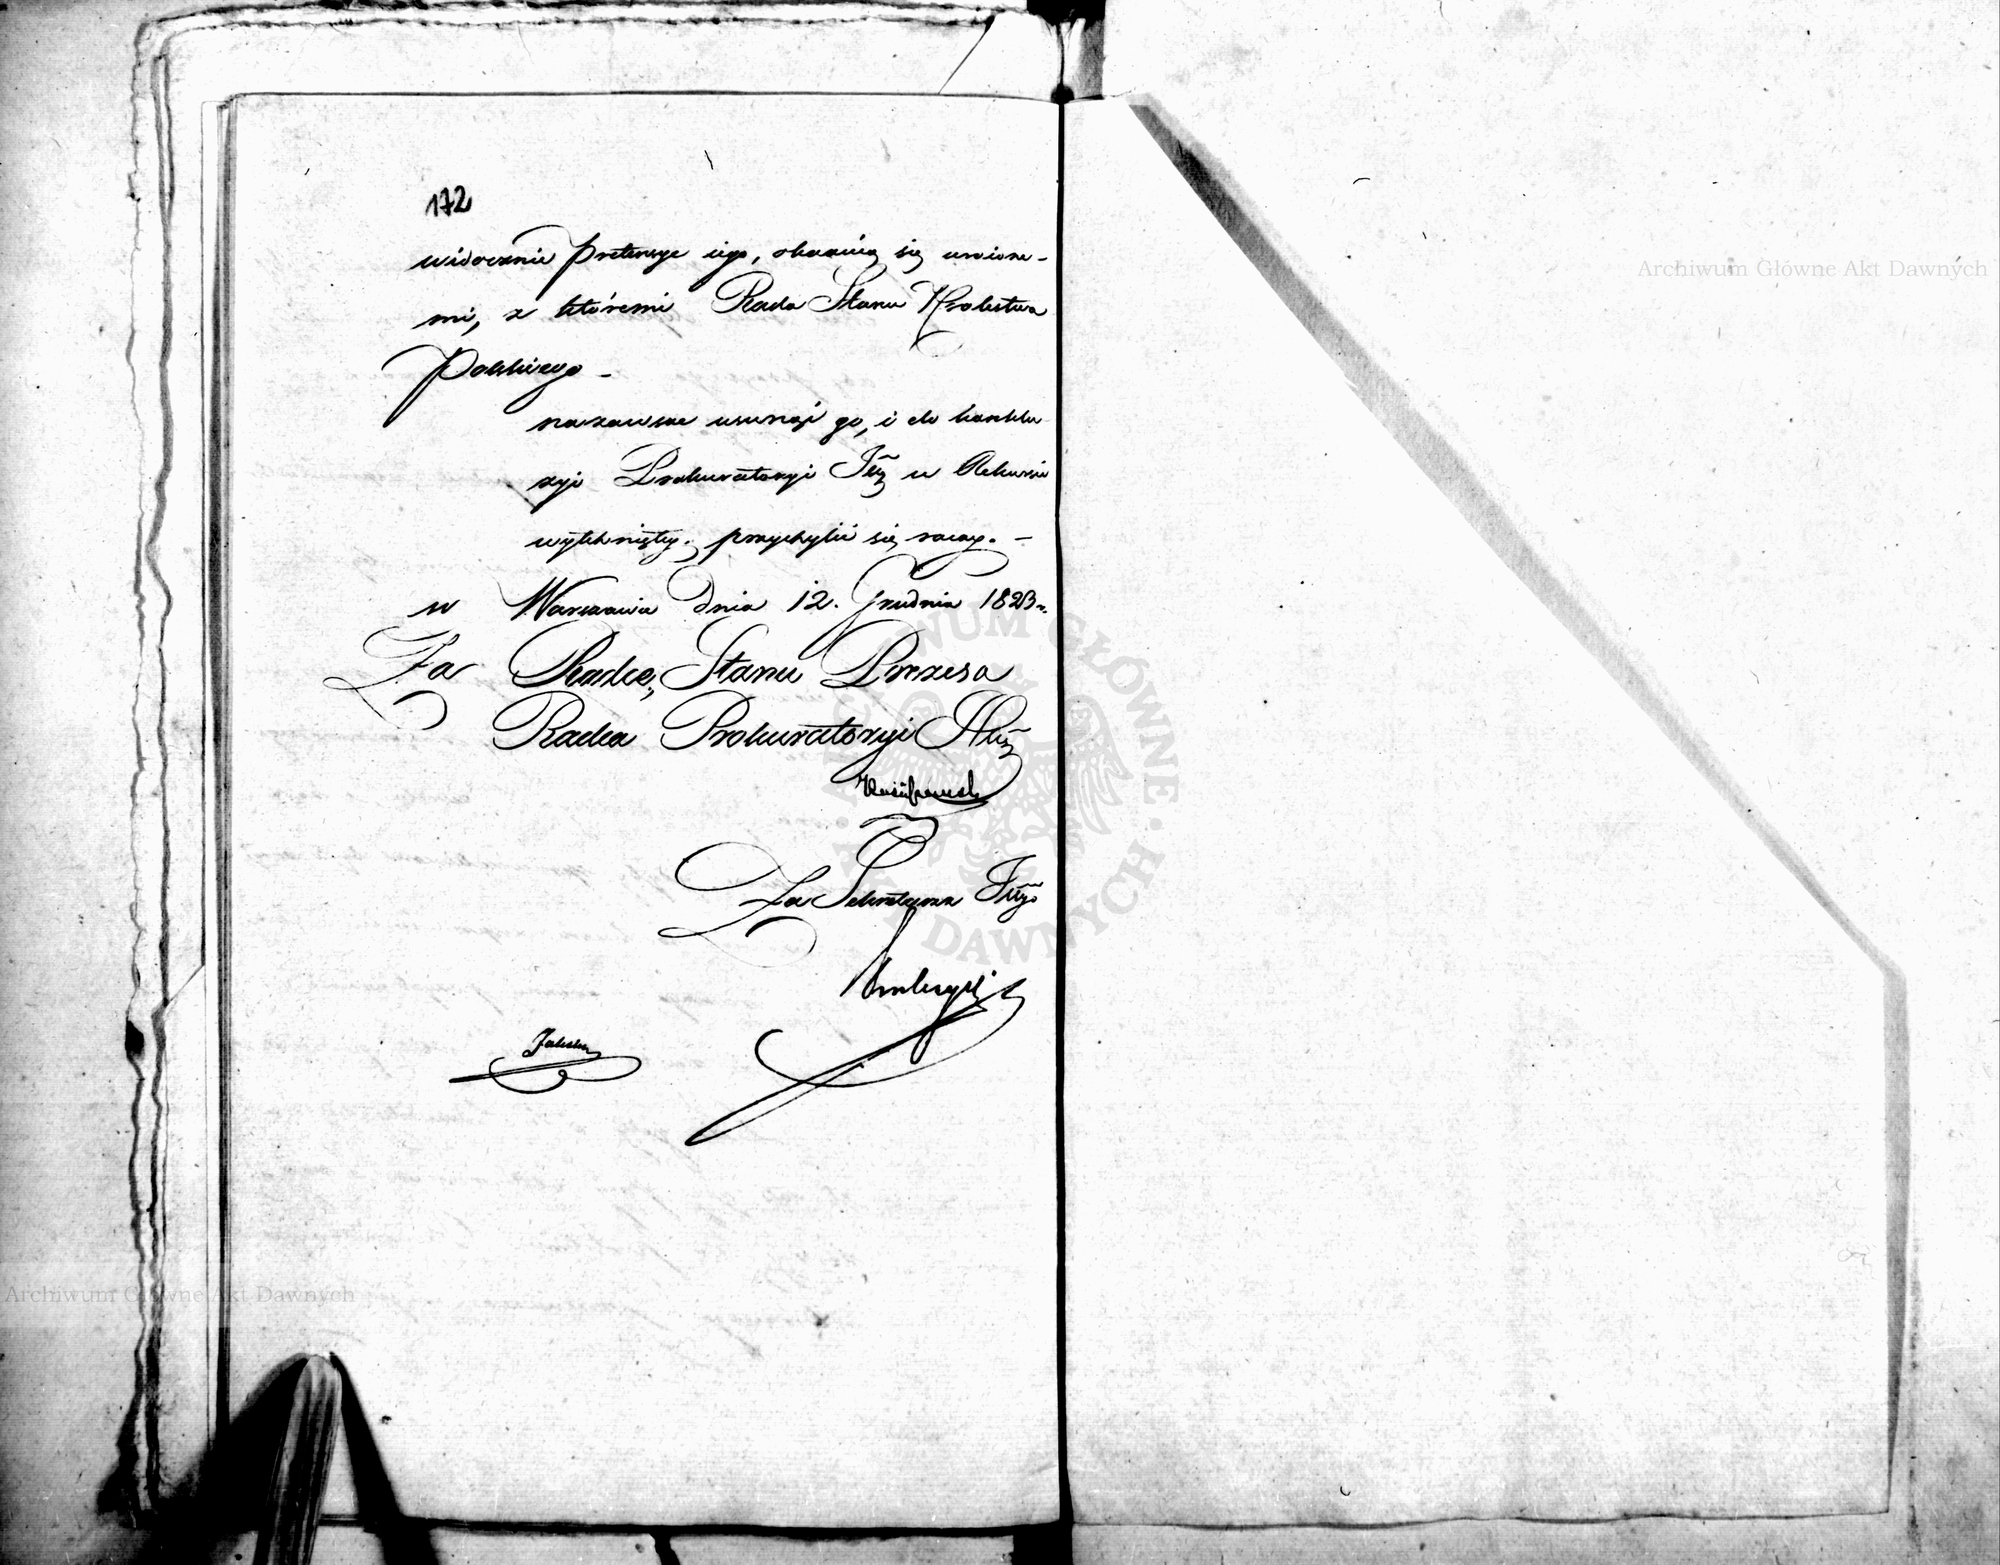 172
widocznie pretensye iego, okazuią się uroione-
mi, z któremi Rada Stanu Krolestwa
Polskiego -
nazawsze usunąć go, i do konklu
zyi Prokuratoryi Jlney w Rekursie
wytchniętey. przychylić się raczy. -
w Warszawie dnia 12. Grudnia 1823 r.
Za Radcę Stanu Prezesa
Radca Prokuratoryi Jlney
Za Sekretarza Jlnego
Archiwum Główne Akt Dawnych
Archiwum Główne Akt Dawnych
ARCHIWUM GŁÓWNE AKT DAWNYCH